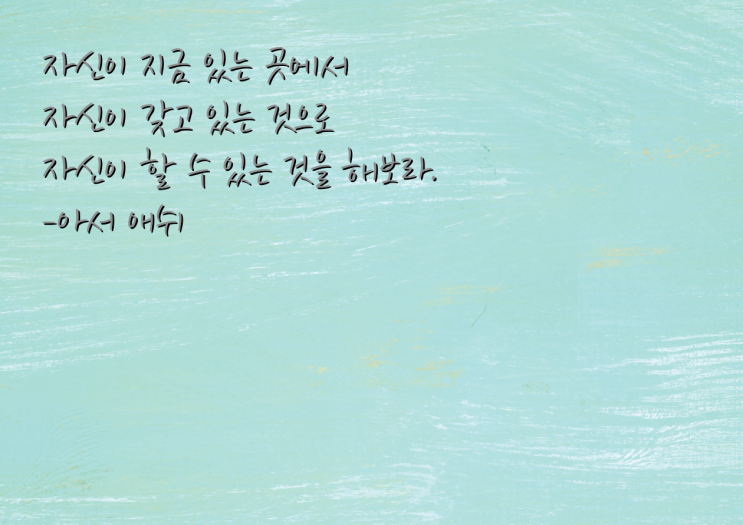 자신이 지금 있는 곳에서
자신이 갖고 있는 것으로
자신이 할 수 있는 것을 해보라.
-아서 애쉬